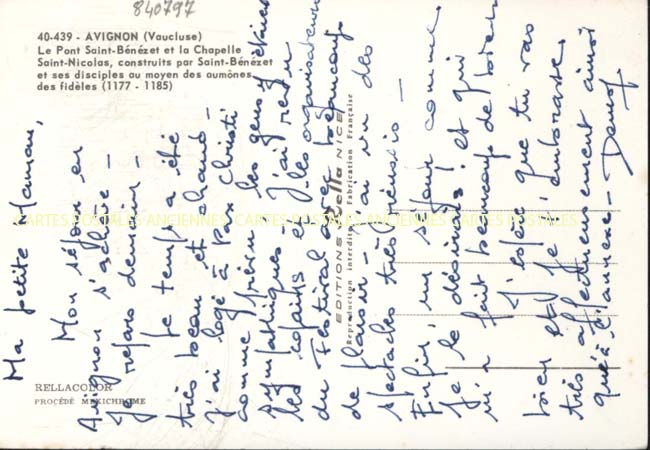 840797
40-439 - AVIGNON (Vaucluse)
Le Pont Saint-Bénézet et la Chapelle
Saint-Nicolas, construits par Saint-Bénézet
et ses disciples au moyen des aumônes
des fidèles (1177 - 1185)
Ma petite Maman,
Mon séjour en
Avignon s'achève -
Je repars demain -
Le temps a été
très beau et chaud -
J'ai logé à Pax Christi
comme prévu, les gens étaient
sympathiques
les repas et
du Festival
de plaisir - J'ai vu des
spectacles très
Enfin, un séjour comme
je le désirais ! et qui
m'a fait beaucoup de bien
J'espère que tu vas
bien et je t'embrasse
très affectueusement ainsi
qu'à l'annexe -
EDITIONS
Reproduction interdite - Fabrication Française
RELLACOLOR
PROCÉDÉ MEXICHROME
CARTES POSTALES ANCIENNES CARTES POSTALES ANCIENNES CARTES POSTALES ANCIENNES